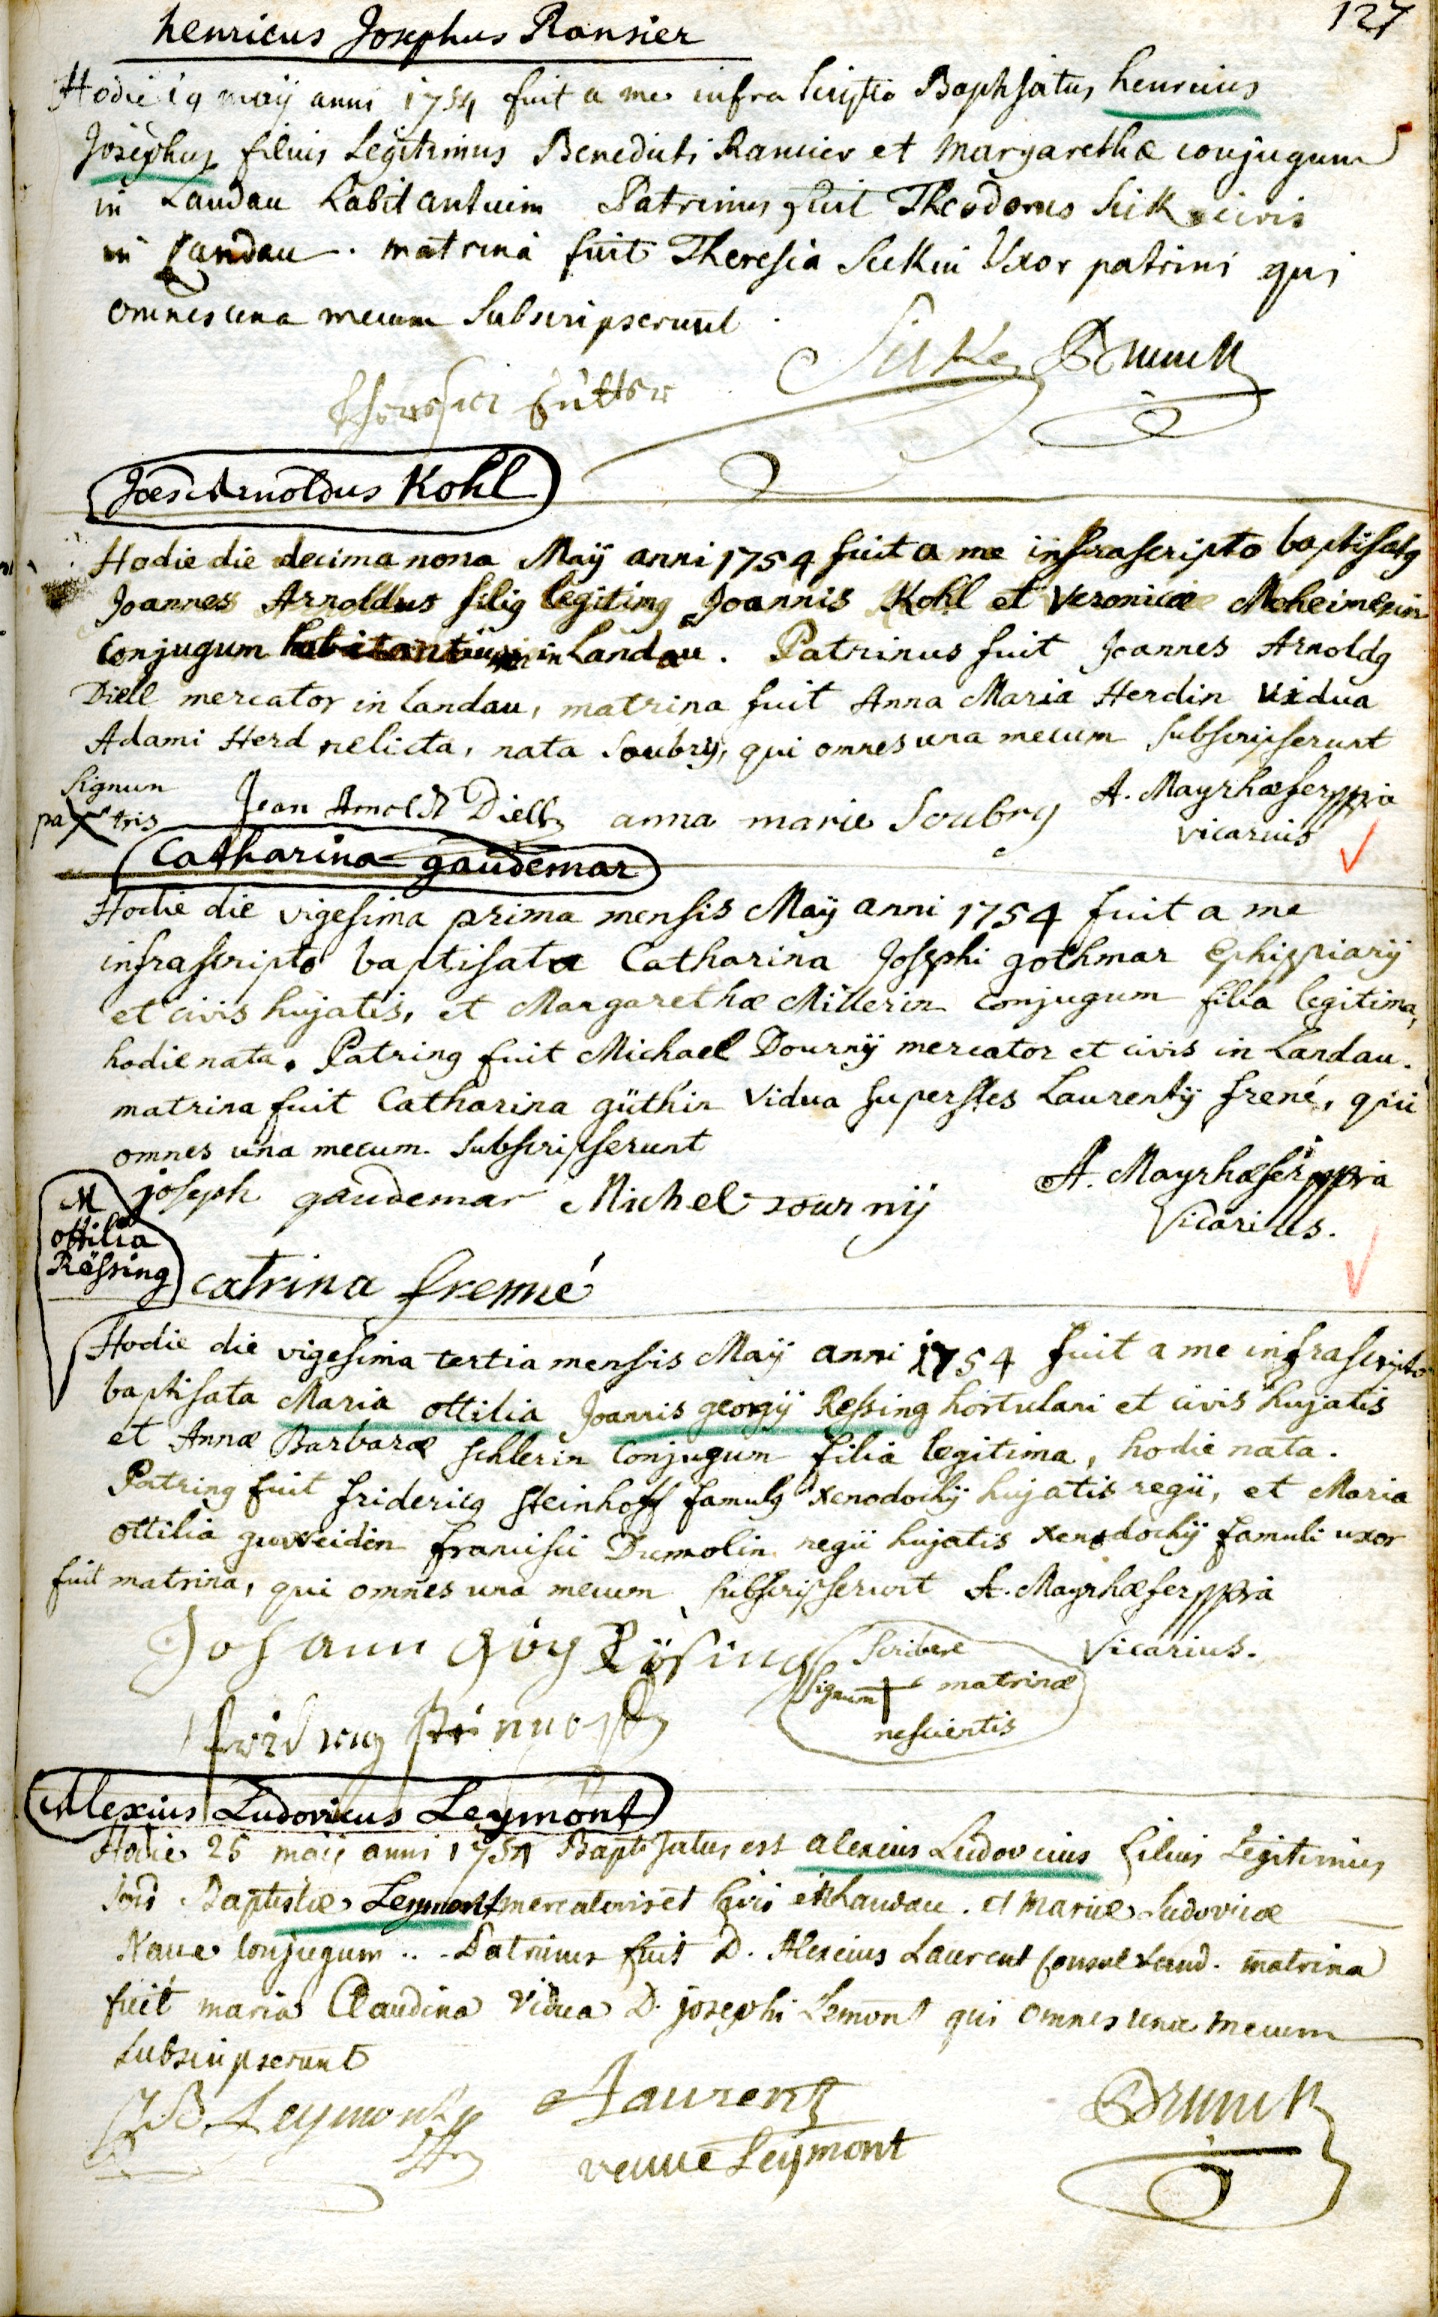 127
henricus Josephus Ransier
Hodie 19 maÿ anni 1754 fuit a me infra scripto Baptisatus henricus
Josephus filius Legitimus Benedicti Rancier et Margarethæ conjugum
in Landau habitantium Patrinus fuit Theodorus Sick civis
in Landau. matrina fuit Theresia Sickin Uxor patrini qui
omnes una mecum Subscripserunt.
Sick Brunck
Joes Arnoldus Kohl
Hodie die decima nona Maÿ anni 1754 fuit a me infrascripto baptisatq
Joannes Arnoldus filiq legitimq Joannis Kohl et Veronicæ
Conjugum habitantium in Landau. Patrinus fuit Joannes Arnoldq
Diell mercator in Landau, matrina fuit Anna Maria Herdin Vidua
Adami Herd relicta, nata Soubrÿ, qui omnes una mecum subscripserunt
Signum
pa X tris Jean Arnoldt Diell anna marie Soubry A. Mayrhæfer ppria
vicarius
Catharina gaudemar
Hodie die vigesima prima mensis Maÿ anni 1754 fuit a me
infrascripto baptisata Catharina Josephi gothmar Ephippiarÿ
et civis hujatis, et Margarethæ Millerin Conjugum filia legitima,
hodie nata. Patrinq fuit Michael Dournÿ mercator et civis in Landau.
matrina fuit Catharina güthin Vidua superstes Laurentÿ frené, qui
omnes una mecum subscripserunt
joseph gaudemar Michel dournÿ A. Mayrhæfer ppria
Vicarius.
M
ottilia
Rëssing
catrina frenné
Hodie die vigesima tertia mensis Maÿ anni 1754 fuit a me infrascripto
baptisata Maria ottilia Joannis georgÿ Ressing hortulani et civis hujatis
et Annæ Barbaræ schlerin Conjugum filia legitima, hodie nata.
Patrinq fuit fridericq steinhoff famulq Xenodochÿ hujatis regii, et Maria
ottilia francisci Dumolin regii hujatis Xenodochÿ famuli uxor
fuit matrina, qui omnes una mecum subscripserunt A. Mayrhæfer ppria
Vicarius.
Johann
Scribere
Signum + matrinæ
nescientis
Alexius Ludovicus Leymont
Hodie 25 maii anni 1754 Baptisatus est alexius Ludovicus filius Legitimus
Baptistæ Leymont mercatoris et Civis Landau. et Mariæ Ludovicæ
conjugum.. Patrinus fuit D. Alexius Laurent Consul Land. matrina
fuit maria Claudina Vidua D. josephi Lemont qui omnes una mecum
subscripserunt
J B Leymont Laurent Brunck
veuve Leÿmont